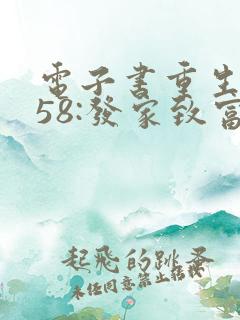 電子書重生
58:發家致富
起飛的跳蚤
未经同意禁止转枝